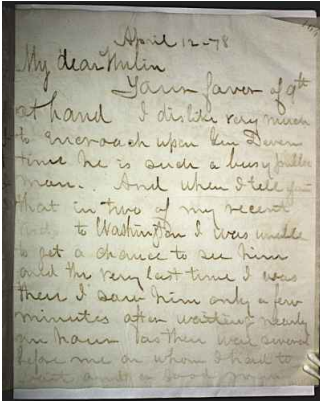 April 12-78
My dear
Your favor of 9th
at hand I dislike very much
to encroach upon Gen Devens
time he is such a busy public
man. And when I tell you
that in two of my recent
to Washington I was unable
to get a chance to see him
and the very last time I was
there I saw him only a few
minutes after waiting nearly
an hour as there were several
before me on whom I had to
wait